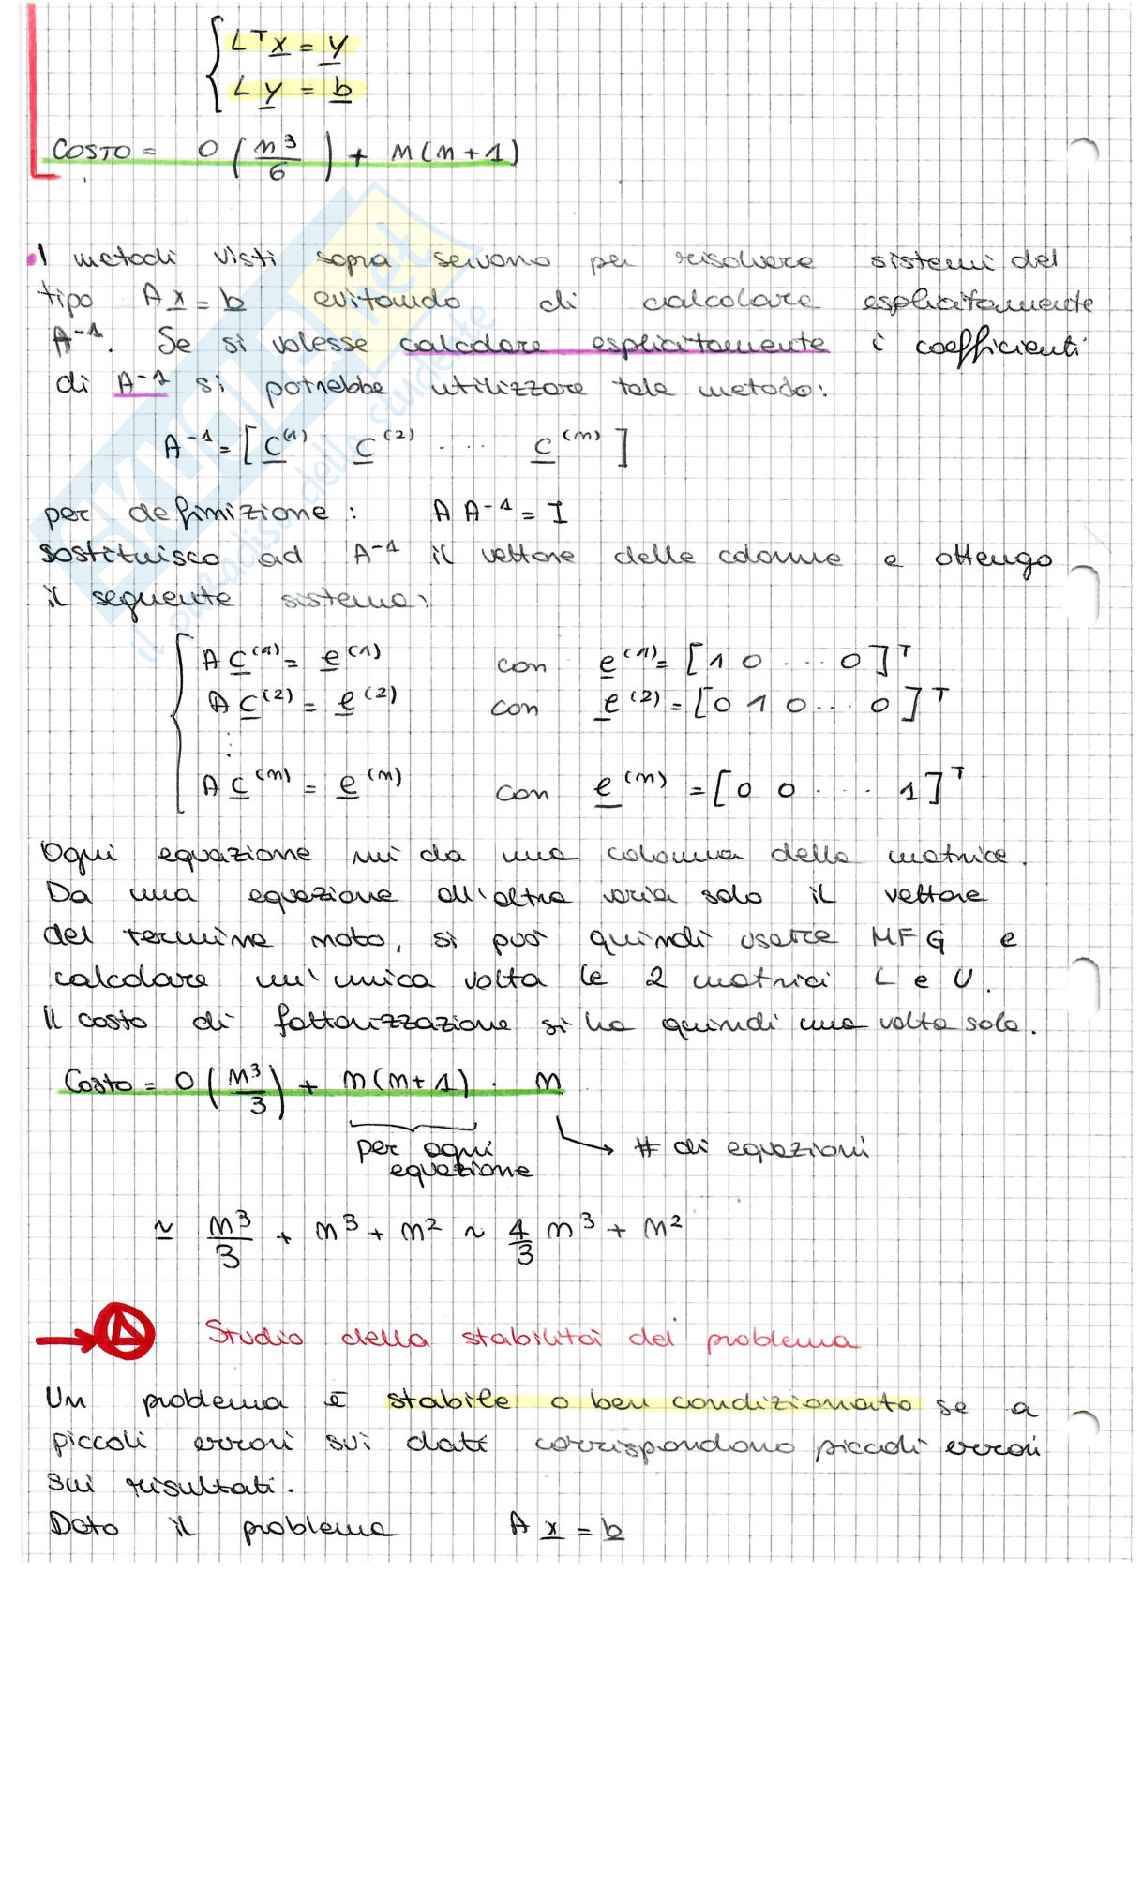 { Lᵀx = y
L y = b
COSTO = O(n³/6) + n(n+1)
• I metodi visti sopra servono per risolvere sistemi del
tipo Ax = b evitando di calcolare esplicitamente
A⁻¹. Se si volesse calcolare esplicitamente i coefficienti
di A⁻¹ si potrebbe utilizzare tale metodo:
A⁻¹ = [ c⁽¹⁾ c⁽²⁾ .... c⁽ⁿ⁾ ]
per definizione: A A⁻¹ = I
sostituisco ad A⁻¹ il vettore delle colonne e ottengo
il seguente sistema:
{ A c⁽¹⁾ = e⁽¹⁾ con e⁽¹⁾ = [1 0 ... 0]ᵀ
A c⁽²⁾ = e⁽²⁾ con e⁽²⁾ = [0 1 0 ... 0]ᵀ
⋮
A c⁽ⁿ⁾ = e⁽ⁿ⁾ con e⁽ⁿ⁾ = [0 0 .... 1]ᵀ
Ogni equazione mi da una colonna della matrice.
Da una equazione all'altra varia solo il vettore
del termine noto, si può quindi usare MFG e
calcolare un'unica volta le 2 matrici L e U.
Il costo di fattorizzazione si ha quindi una volta sola.
Costo = O(n³/3) + n(n+1) · n
per ogni → # di equazioni
equazione
≃ n³/3 + n³ + n² ~ 4/3 n³ + n²
→ A Studio della stabilità del problema
Un problema è stabile o ben condizionato se a
piccoli errori sui dati corrispondono piccoli errori
sui risultati.
Dato il problema A x = b
SKUOLA.net
il paradiso dello studente